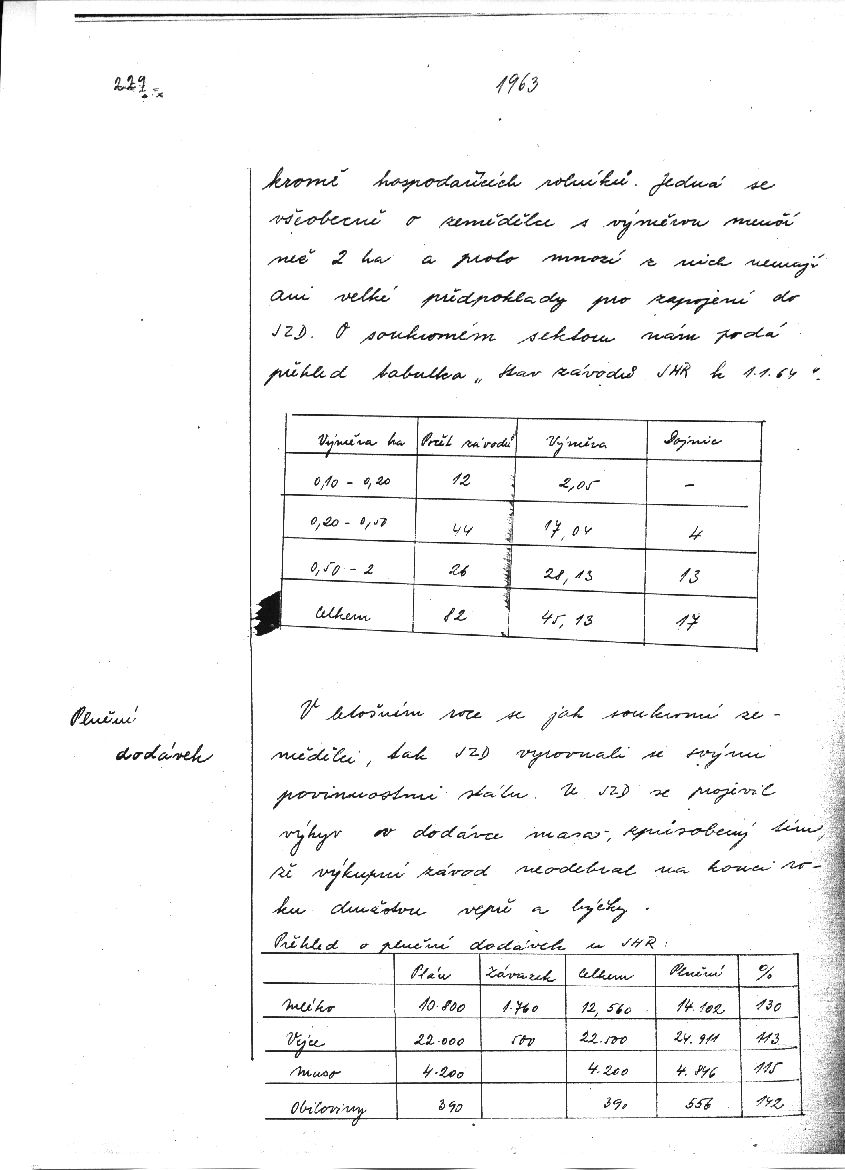 229
1963
kromě hospodařících rolníků. Jedná se
všeobecně o zemědělce s výměrou menší
než 2 ha a proto mnozí z nich nemají
ani velké předpoklady pro zapojení do
JZD. O soukromém sektoru nám podá
přehled tabulka „Stav závodů JHR k 1.1.64".
Výměra ha Počet závodů Výměra Dojnic
0,10 - 0,20 12 2,05 -
0,20 - 0,50 44 17,04 4
0,50 - 2 26 28,13 13
Celkem 82 45,13 17
Plnění
dodávek
V letošním roce se jak soukromí ze-
mědělci, tak JZD vyrovnali se svými
povinnostmi státu. U JZD se projevil
výkyv v dodávce masa, způsobený tím,
že výkupní závod neodebral na konci ro-
ku dužstvu vepře a býčky.
Přehled o plnění dodávek u JHR:
Plán Závazek Celkem Plnění %
Mléko 10.800 1.760 12,560 14.102 130
Vejce 22.000 500 22.500 24.911 113
Maso 4.200 4.200 4.846 115
Obiloviny 390 390 556 142